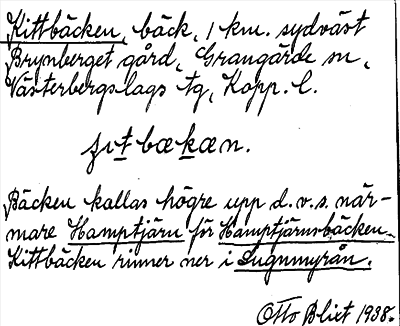 Kittbäcken, bäck, 1 km. sydväst
Brynberget gård, Grangärde sn,
Västerbergslags tg, Kopp. l.
bækæn.
Bäcken kallas högre upp d.v.s. när-
mare Hamptjärn för Hamptjärnsbäcken.
Kittbäcken rinner ner i Lugnmyrån.
Otto Blixt 1938.